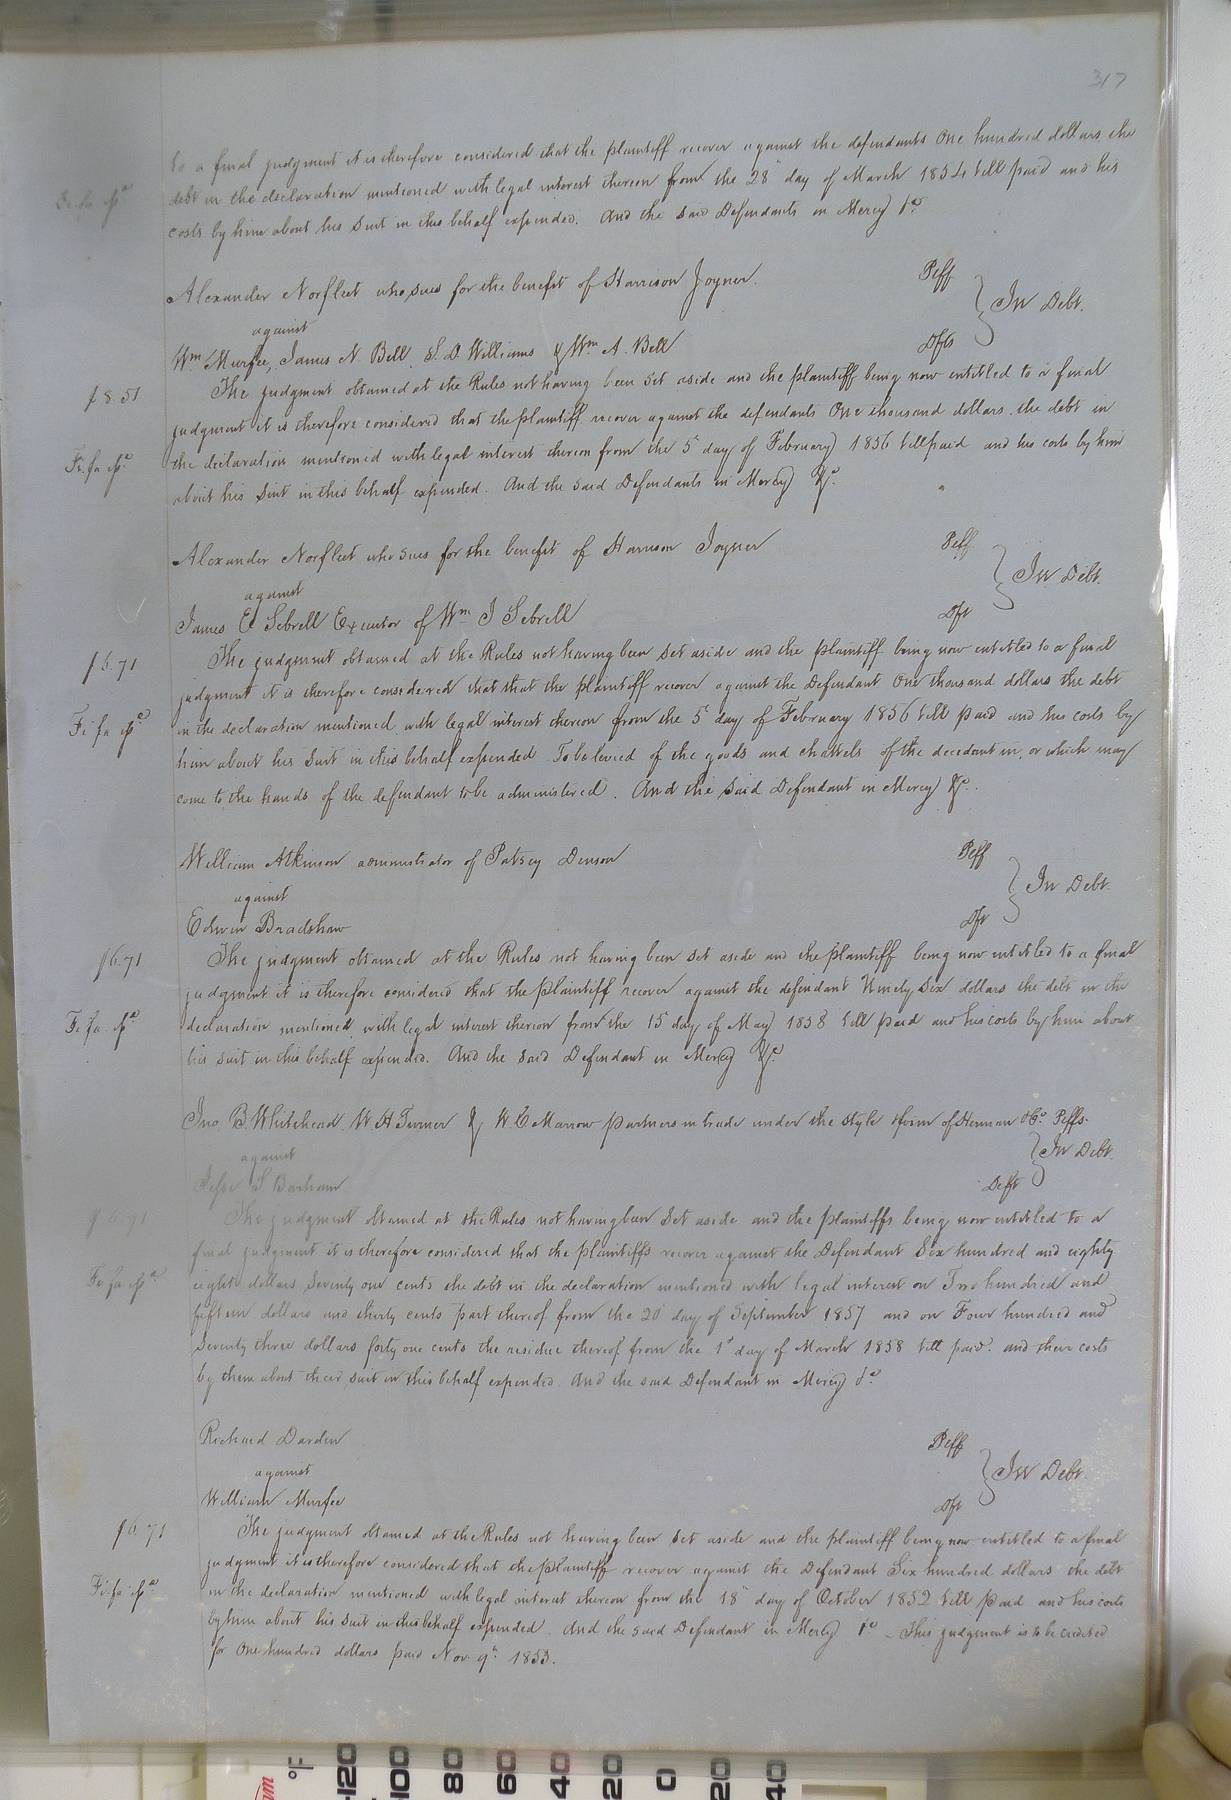 317
to a final judgment it is therefore considered that the plaintiff recover against the defendants One hundred dollars, the
debt in the declaration mentioned with legal interest thereon from the 28" day of March 1854 till paid and his
Fi fa
costs by him about his Suit in this behalf expended. And the said Defendants in Mercy &c
Alexander Norfleet who sues for the benefit of Harrison Joyner. Plff
against } In Debt.
Wm Murfee, James N. Bell, S. D. Williams & Wm A. Bell Dfts
The judgment obtained at the Rules not having been set aside and the plaintiff being now entitled to a final
$8.51
judgment it is therefore considered that the plaintiff recover against the defendants One thousand dollars, the debt in
the declaration mentioned with legal interest thereon from the 5" day of February 1856 till paid and his costs by him
Fi. fa
about his Suit in this behalf expended. And the said Defendants in Mercy &c.
Alexander Norfleet who sues for the benefit of Harrison Joyner Plff
against } In Debt.
James E Sebrell Executor of Wm J Sebrell Dft
The judgment obtained at the Rules not having been set aside and the plaintiff being now entitled to a final
$6.71
judgment it is therefore considered that that the plaintiff recover against the Defendant One thousand dollars the debt
in the declaration mentioned with legal interest thereon from the 5" day of February 1856 till paid and his costs by
Fi fa
him about his Suit in this behalf expended To be levied of the goods and chattels of the decedent in, or which may
come to the hands of the defendant to be administered. And the said Defendant in Mercy &c.
William Atkinson administrator of Patsey Denson Plff
against } In Debt.
Edwin Bradshaw Dft
The judgment obtained at the Rules not having been set aside and the plaintiff being now entitled to a final
$6.71
judgment it is therefore considered that the plaintiff recover against the defendant Ninety Six dollars the debt in the
declaration mentioned with legal interest thereon from the 15" day of May 1858 till paid and his costs by him about
Fi. fa.
his suit in this behalf expended. And the said Defendant in Mercy &c
Jno B. Whitehead W H Turner & W C Marrow partners in trade under the style & firm of Herman & Co. Plffs.
against } In Debt.
Jesse S Barham Deft
The judgment obtained at the Rules not having been Set aside and the plaintiffs being now entitled to a
$6.71
final judgment it is therefore considered that the plaintiffs recover against the Defendant Six hundred and eighty
eight dollars Seventy one cents the debt in the declaration mentioned with legal interest on Two hundred and
Fi fa
fifteen dollars and thirty cents part thereof from the 20" day of September 1857 and on Four hundred and
Seventy three dollars forty one cents the residue thereof from the 1st day of March 1858 till paid. and their costs
by them about their suit in this behalf expended. And the said Defendant in Mercy &c
Richard Darden Plff
against } In Debt.
William Murfee Dft
The judgment obtained at the Rules not having been set aside and the plaintiff being now entitled to a final
$6.71
judgment it is therefore considered that the plaintiff recover against the Defendant Six hundred dollars the debt
in the declaration mentioned with legal interest thereon from the 18" day of October 1852 till paid and his costs
Fi. fa
by him about his suit in this behalf expended. And the said Defendant in Mercy &c - This judgment is to be credited
for One hundred dollars paid Nov. 9th 1853.
°F 120 100 80 60 40 20 0 20 40